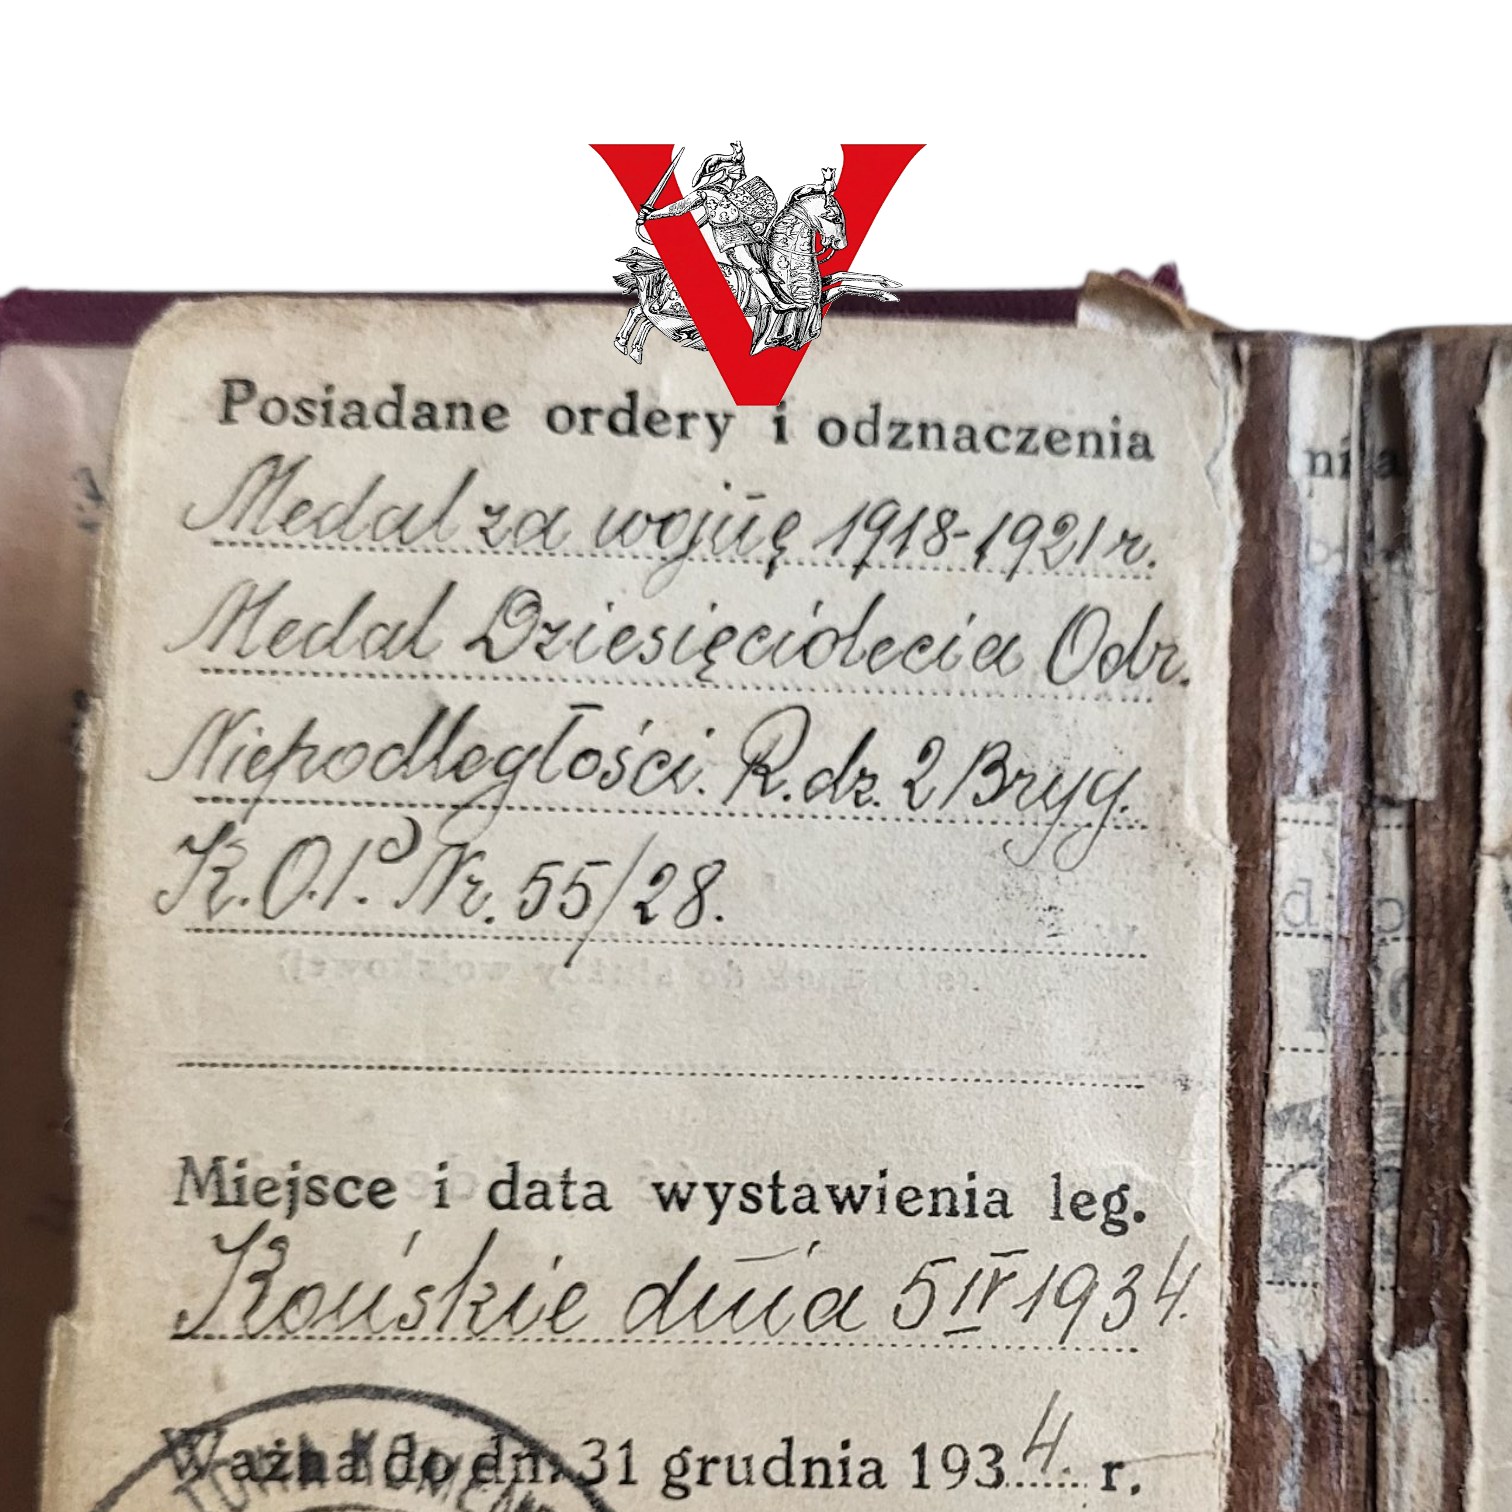 V
Posiadane ordery i odznaczenia
Medal za wojnę 1918-1921 r.
Medal Dziesięciolecia Odz.
Niepodległości. R. dz. 2 Bryg.
K.O.P. Nr. 55/28.
Miejsce i data wystawienia leg.
Końskie dnia 5 IV 1934.
Ważna do dn. 31 grudnia 1934 r.